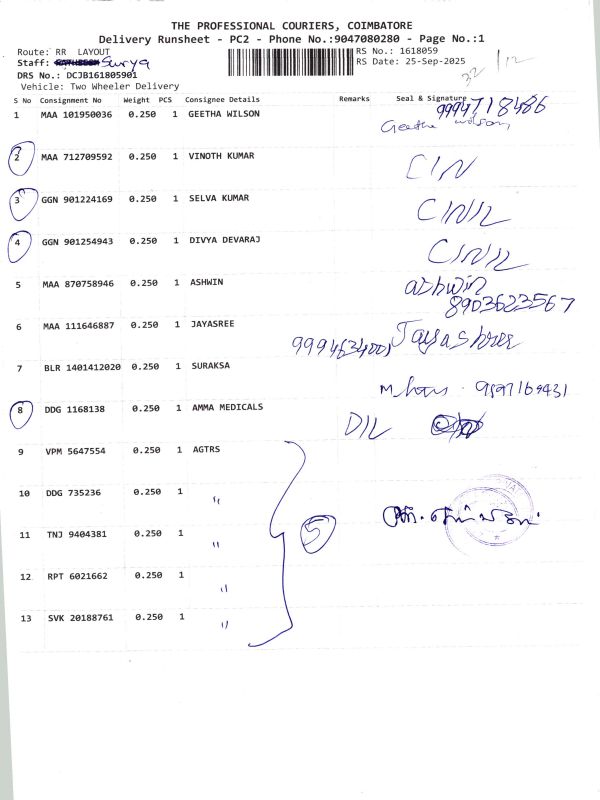 THE PROFESSIONAL COURIERS, COIMBATORE
Delivery Runsheet - PC2 - Phone No.:9047080280 - Page No.:1
Route: RR LAYOUT RS No.: 1618059
Staff: Surya RS Date: 25-Sep-2025
DRS No.: DCJB161805901 32/12
Vehicle: Two Wheeler Delivery
S No Consignment No Weight PCS Consignee Details Remarks Seal & Signature
1 MAA 101950036 0.250 1 GEETHA WILSON 9994718486
Geetha wilson
2 MAA 712709592 0.250 1 VINOTH KUMAR
3 GGN 901224169 0.250 1 SELVA KUMAR
4 GGN 901254943 0.250 1 DIVYA DEVARAJ
5 MAA 870758946 0.250 1 ASHWIN ashwin
8903623567
6 MAA 111646887 0.250 1 JAYASREE Jayashree
7 BLR 1401412020 0.250 1 SURAKSA
8 DDG 1168138 0.250 1 AMMA MEDICALS D/L
9 VPM 5647554 0.250 1 AGTRS
10 DDG 735236 0.250 1 "
5
11 TNJ 9404381 0.250 1 "
12 RPT 6021662 0.250 1 "
13 SVK 20188761 0.250 1 "